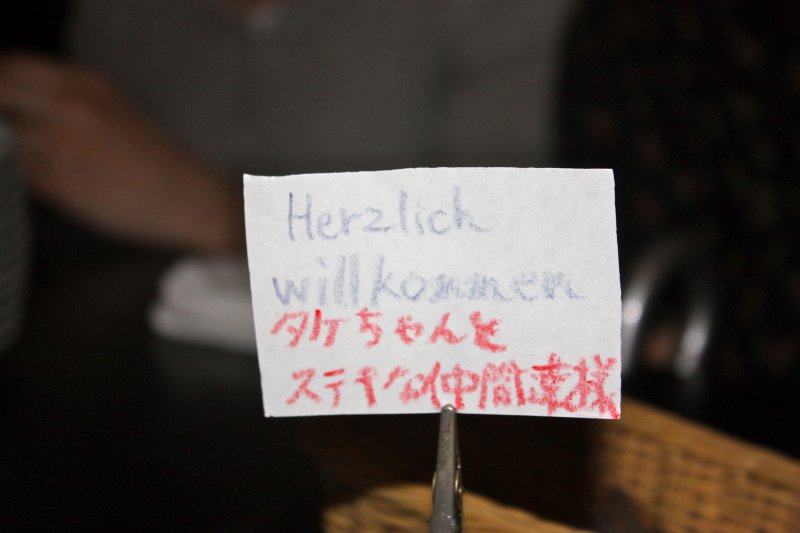 Herzlich
willkommen
タケちゃんと
ステキな仲間達様